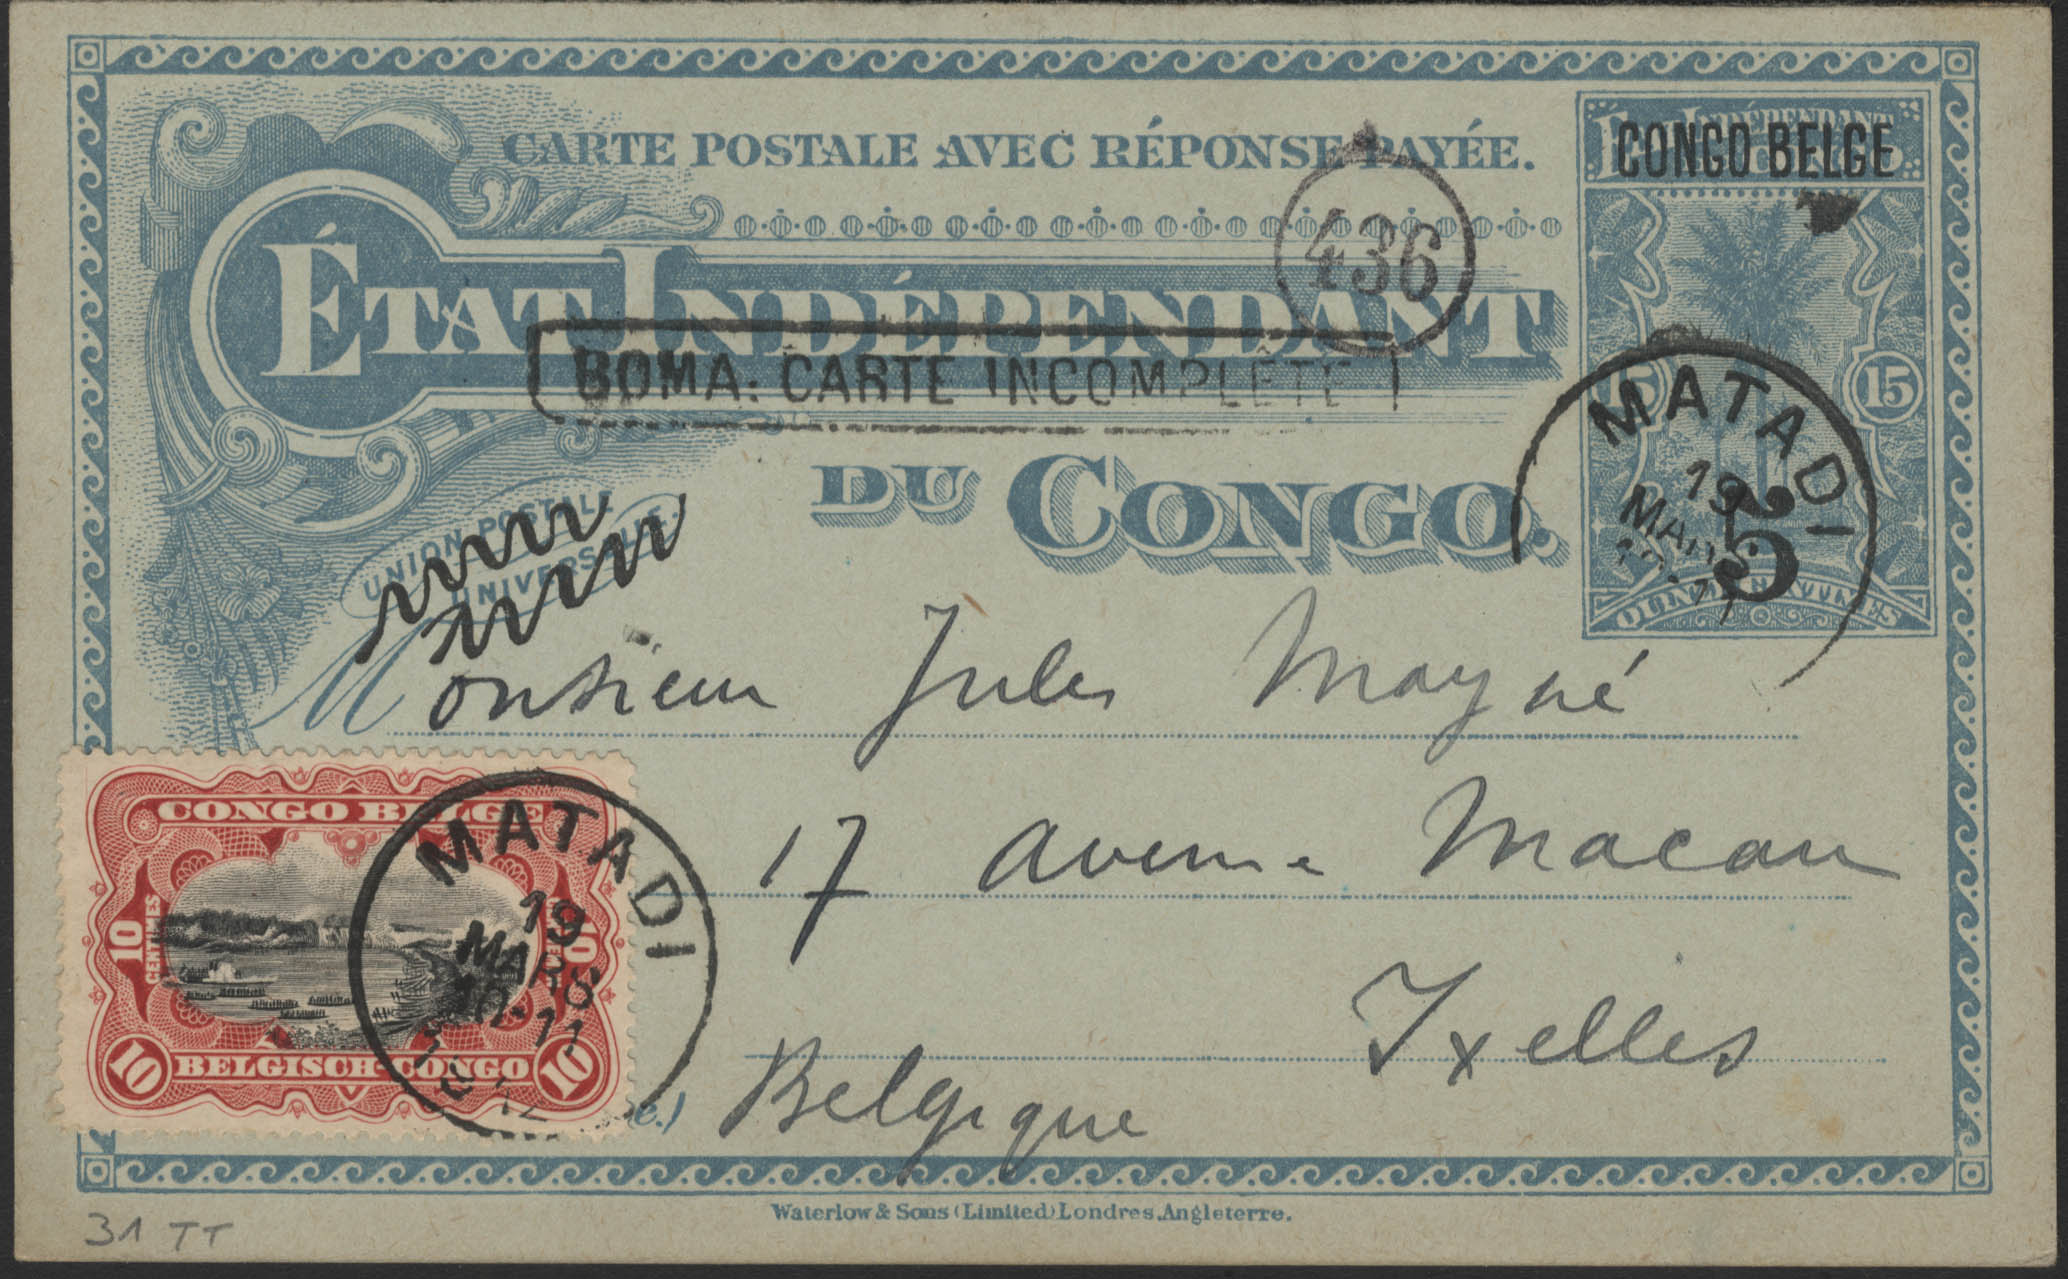 CARTE POSTALE AVEC RÉPONSE PAYÉE.
ÉTAT INDÉPENDANT
DU CONGO.
436
BOMA: CARTE INCOMPLÊTE
UNION POSTALE
UNIVERSELLE.
ÉTAT INDÉPENDANT
CONGO BELGE
15 15
5
QUINZE CENTIMES
MATADI
19
MARS
Monsieur Jules Mayné
17 avenue Macau
Ixelles
Belgique
CONGO BELGE
10 CENTIMES
10
BELGISCH-CONGO
10 10
MATADI
19
MARS
10-11
12
e.)
Waterlow & Sons (Limited) Londres, Angleterre.
31 TT